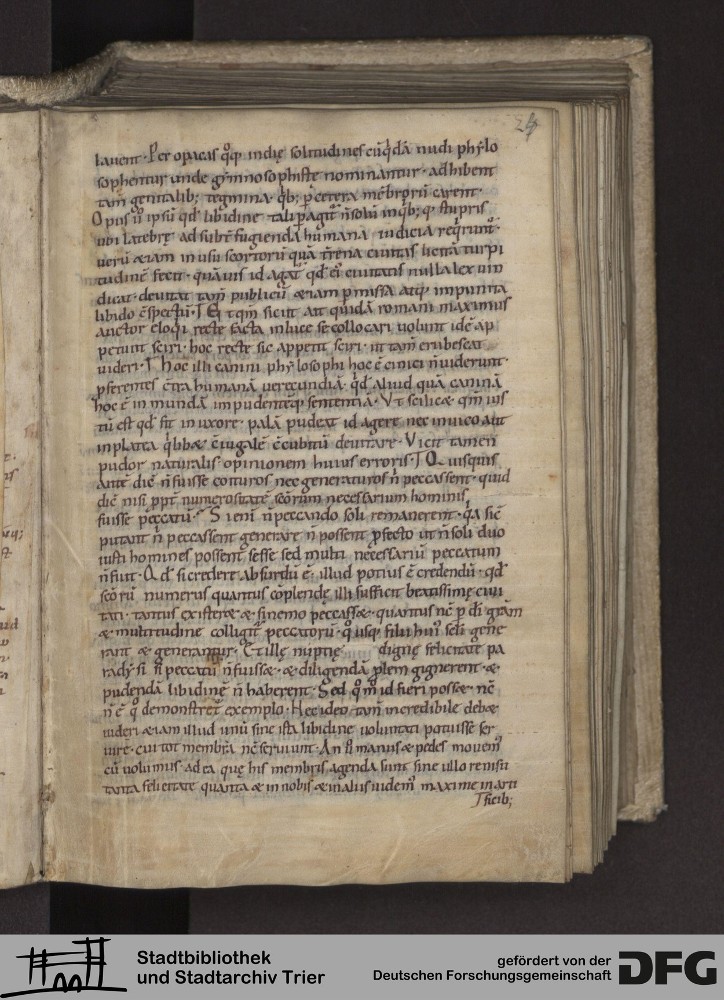 24
lauent· Per opacas q̊q; indię solitudines cū q̄dā nudi phylo
sophentur unde gymnosophistę nominantur· adhibent
tam̄ genitalib; tegmina· q̄b; p̄ cetera mēbrorū carent·
Opus ū ipsū qd̄ libidine tali p̄agit̄ ñ solū in q̄b; q; stupris
ubi latebrę ad subt̄fugienda humana iudicia reqrunt̄·
uerū ætiam in usu scortorū quā t̄rena ciuitas licitā turpi
tudinē fecit· quāuis id agat̄ qd̄ ei ciuitatis nulla lex uin
dicat· deuitat tam̄ publicū ætiam p̄missa atq; impunita
libido cspectū·
auctor eloqui recte facta in luce se collocari uolunt idē ap
petunt sciri· hoc recte sic appetit sciri· ut tam̄ erubescat
uideri· Hoc illi canini phylosophi hoc ē cinici ñ uiderunt·
pferentes c̄tra humanā uerecundiā· qd̄ aliud quā caninā
hoc ē inmundā impudentēq; sententiā· Vt scilicæ qm̄ ius
tū est qd̄ fit in uxore· palā pudeat id agere nec in uico aut
in platea q̄libæ c̄iugalē c̄cubitū deuitare· Vicit tamen
pudor naturalis opinionem huius erroris· Quisquis
autē dic̄ ñ fuisse coituros nec generaturos ñ peccassent· quid
dic̄ nisi ppt̄ numerositatē sc̄orum necessarium hominis
fuisse peccatū· Si eni ñ peccando soli remanerent· q̄a sic̄
putant ñ peccassent generare ñ possent pfecto ut ñ soli duo
iusti homines possent esse sed multi necessariū peccatum
ñ fuit· Qd̄ si credere absurdū ē· illud potius ē credendū· qd̄
sc̄orū numerus quantus cōplendę illi sufficit beatissimę ciui
tati· tantus existeræ æ si nemo peccassæ· quantus nc̄ p di gram̄
æ multitudine colligit̄ peccatorū· q̊ usq; filii hui᾽ scl̄i gene
rant æ generantur· Et illę nuptię dignę felicitate pa
radysi si peccatū ñ fuissæ· æ diligendā plem gignerent· æ
pudendā libidinē ñ haberent· Sed q̊m̊ id fieri possæ· nc̄
ñ ē q̊ demonstret̄ exemplo· Nec ideo tam̄ incredibile debæ
uideri ætiam illud unū sine ista libidine uoluntati potuisse ser
uire· cui tot membra nc̄ seruiunt· An ū manus æ pedes mouem᾽
cū uolumus· ad ea quę his membris agenda sunt sine ullo renisu
tanta felicitate quanta æ in nobis æ in aliis uidem᾽ maxime in arti
ficib;
Stadtbibliothek
und Stadtarchiv Trier
gefördert von der
Deutschen Forschungsgemeinschaft
DFG